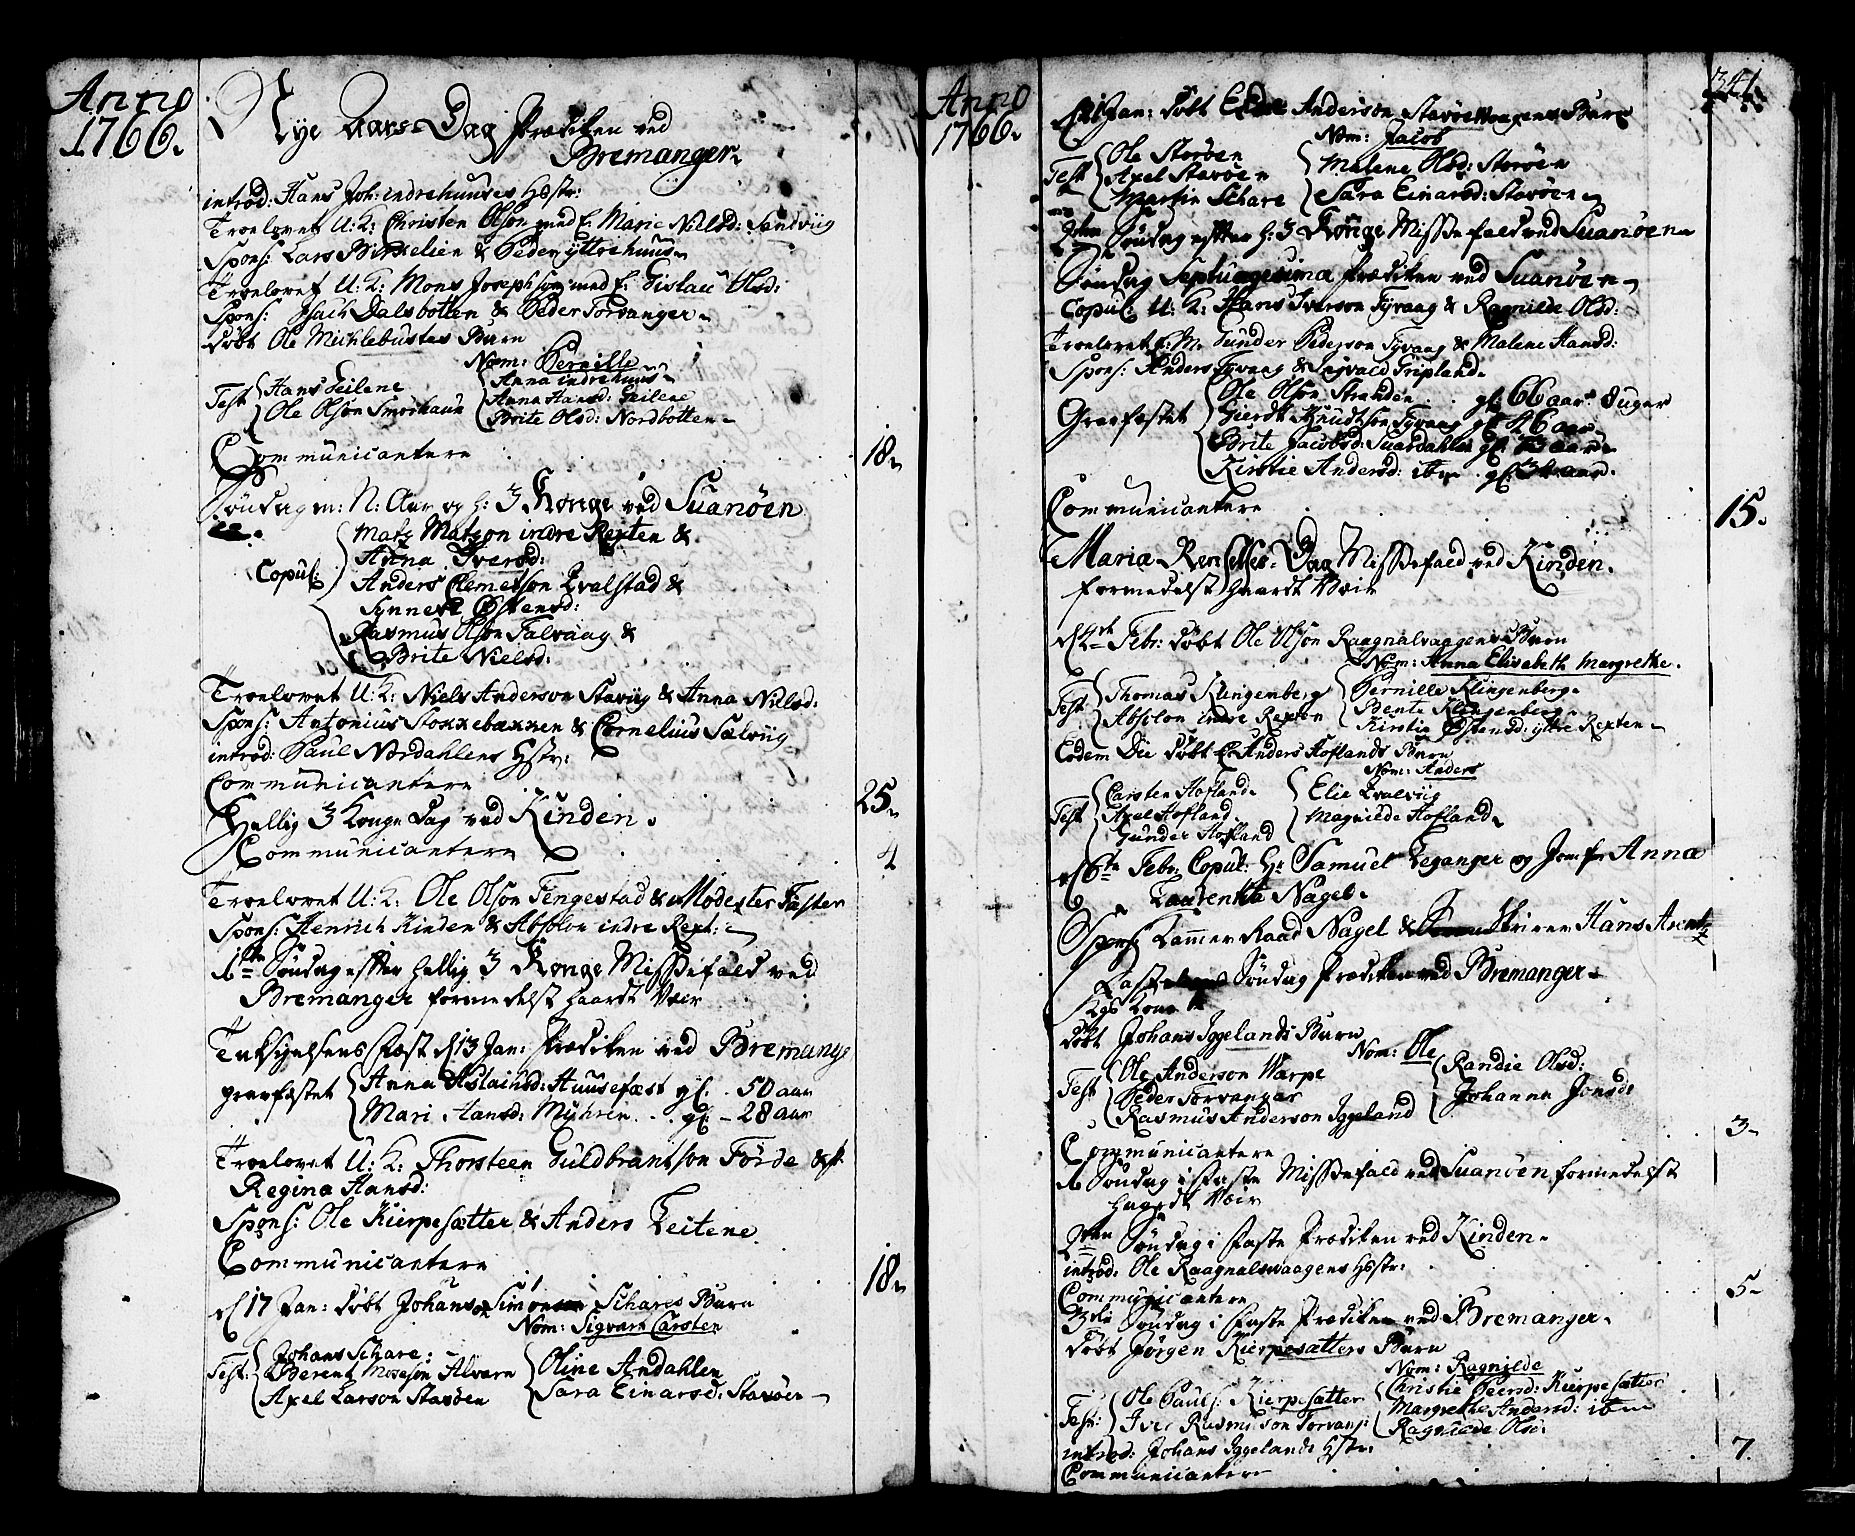 Anno
1766.
Nye Aars Dag Prædiken ved
Bremanger
introd: Hans Joh: indrehuuses Hstr:
Troelovet U: K: Christen Olson med E: Marie Nillsd: Sandviig
Spons: Lars Birkelien & Peder yttrehuus
Troelovet U: K: Mons Josephson med E: Gislau Olsd:
Spons: Isach Dalsbotten & Peder Torvanger
Døbt Ole Michlebustes Barn
Nom: Pernille
Test { Hans Leilene { Anna indrehuus
Ole Olson Smørhaun Anna Hansd: Leilene
Brite Olsd: Nordbotten
Communicantere 18
Søndag m: N: Aar og h: 3 Konge ved Suanøen
Copul: { Matz Matzon indre Rexten &
Anna Iversd:
Anders Clemetson Qvalstad &
Synneve Østensd:
Rasmus Olson Falvaag &
Brite Nielsd:
Troelovet U: K: Niels Anderson Staviig & Anna Nillsd:
Spons: Antonius Stoxxebaxxen & Cornelius Sælviig
introd: Paul Nordahlens Hstr:
Communicantere 25
Hellig 3 Konge Dag ved Kinden.
Communicantere 4
Troelovet U: K: Ole Olson Tengestad & Modester Faster
Spons: Henrich Kinden & Absolon indre Rext:
1te Søndag effter hellig 3 Konge Missefald ved
Bremanger formedelst haardt Veir
Taksigelsens Fæst d 13 Jan: Prædiken ved Bremang
gravfæstet { Anna Aslachsd: Huusefæst gl. 50 aar
Mari Hansd: Myhren gl - 28 aar
Troelovet U: K: Thorsteen Guldbrantson Førde &
Regina Hansd:
Spons: Ole Kierpesætter & Anders Leitene
Communicantere 18
d 17 Jan: Døbt Johans Simonsen Schares Barn
Nom: Sigvart Carsten
Test: { Johans Schare: { Oline Andahlen
Berent Moseson Alvern Sara Einarsd: Stavøen
Axel Larson Stavøen
Anno
1766.
341.
d 21 Jan: Døbt Anderson Barn
Nom: Jacob
Test { Ole Storøen { Malene Olsd: Storøen
Axel Stavøen Sara Einarsd: Stavøen
Martin Schare
2den Søndag effter h: 3 Konge Missefald ved Suanøen
Søndag Septuagesima Prædiken ved Suanøen
Copul: U: K: Hans Iverson Tyvaag & Ragnilde Olsd:
Troelovet E: M: Gunder Pederson Tyvaag & Malene Hansd:
Spons: Anders Tyvaag & Sigvald Tripland
Gravfæstet { Ole Olson Stranden gl 66 aar 8 uger
Gierdt Knudtson Tyvaag gl 46 aar
Brite Jacobsd: Svardahlen gl. aar
Kirstie Andersd: ibm gl: aar.
Communicantere 15.
Maria Renselses Dag Missefald ved Kinden.
formedelst haardt Veir
d 4de Febr: Døbt Ole Olson Raagnalvaagens Barn
Nom: Anna Elisabeth Margrethe.
Test { Thomas Klingenberg { Pernille Klingenberg
Absolon indre Rexten Bente Klingenberg
Kirstie Østensd: yttre Rexten
Eodem Die døbt Anders Hoflands Barn
Nom: Anders
Test { Carsten Hofland { Elie Qvalviig
Axel Hofland Magnilde Hofland
Gunder Hofland
d 6te Febr: Copul: Hr Samuel Leganger og Jomfr Anna
Laurentia Nagel.
Spons: Kammer Raad Nagel & Skriver Hans Arentz
Søndag Prædiken ved Bremanger
Døbt Johans Iggelands Barn
Nom: Ole
Test { Ole Anderson Varpe { Randie Olsd:
Peder Torvanger Johanna Jonsd:
Rasmus Anderson Iggeland
Communicantere 3
1 Søndag i Faste Missefald ved Suanøen formedelst
haardt Veir
2den Søndag i Faste Prædiken ved Kinden
introd: Ole Raagnalsvaagens Hstr:
Communicantere 5
3die Søndag i Faste Prædiken ved Bremanger.
Døbt Jørgen Kierpesætters Barn
Nom: Ragnilde
Test: { Ole Pauls: Kierpesætter { Christie Peersd: Kierpesætter
Iver Rasmuson Torvang: Margrethe Andersd: ibm
Ragnilde Olsd:
introd: Johans Iggelands Hstr:
Communicantere 7.